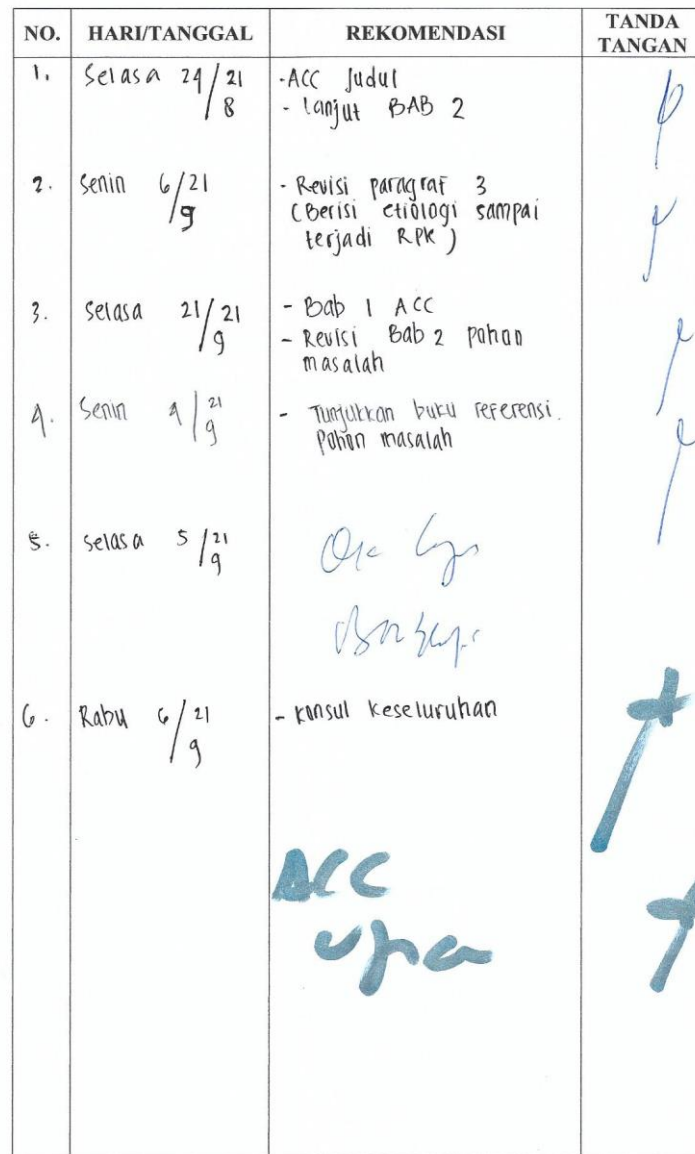 NO. HARI/TANGGAL REKOMENDASI TANDA TANGAN
1. Selasa 24/21 8 - ACC Judul
- Lanjut BAB 2
2. Senin 6/21 9 - Revisi paragraf 3
(Berisi etiologi sampai
terjadi RPK)
3. Selasa 21/21 9 - Bab 1 ACC
- Revisi Bab 2 pohon
masalah
4. Senin 4/21 9 - Tunjukkan buku referensi.
Pohon masalah
5. Selasa 5/21 9
6. Rabu 6/21 9 - Konsul Keseluruhan
ACC